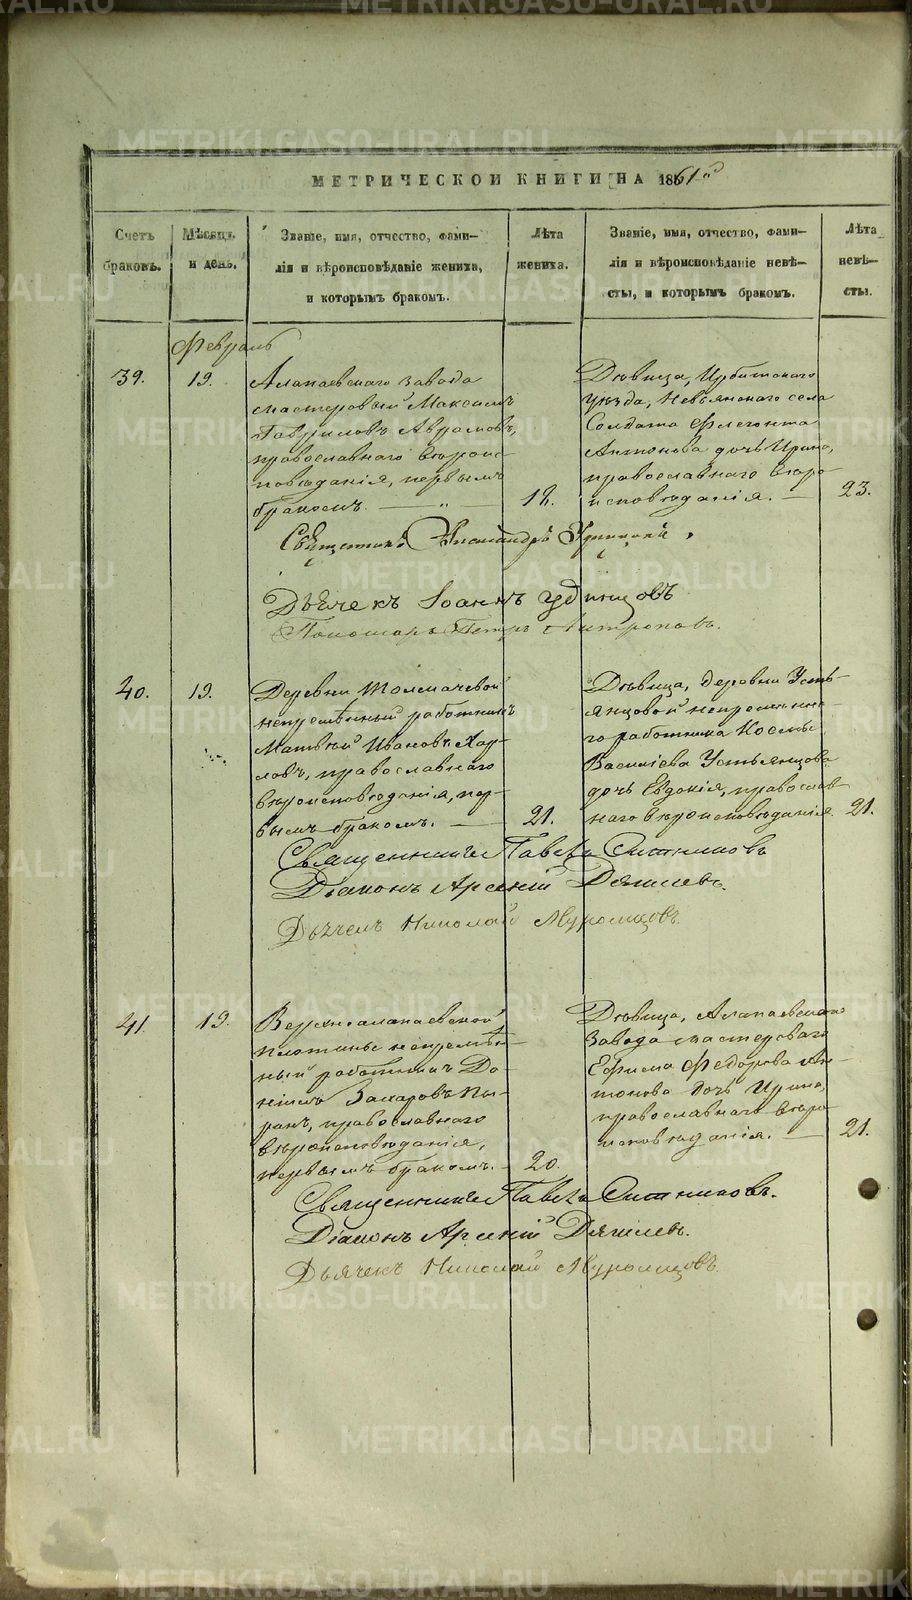 МЕТРИЧЕСКОЙ КНИГИ НА 1861й
Счетъ
браковъ.
Мѣсяцъ
и день.
Званіе, имя, отчество, фами-
лія и вѣроисповѣданіе жениха,
и которымъ бракомъ.
Лѣта
жениха.
Званіе, имя, отчество, фами-
лія и вѣроисповѣданіе невѣ-
сты, и которымъ бракомъ.
Лѣта
невѣ-
сты.
Февраль
39.
19.
Алапаевскаго завода
мастеровый Максимъ
Гавриловъ Аврамовъ,
православнаго вѣроис-
повѣданія, первымъ
бракомъ. — „ —
18.
Дѣвица, Ирбитскаго
уѣзда, Невьянскаго села
Солдата Флегонта
Антонова дочь Ирина,
православнаго вѣро-
исповѣданія. —
23.
Священникъ Александръ
Дьячекъ Іоаннъ Удинцовъ
Пономарь Петръ
40.
19.
Деревни Толмачевой
непремѣнный работникъ
Матвѣй Ивановъ Кар-
ловъ, православнаго
вѣроисповѣданія, пер-
вымъ бракомъ. —
21.
Дѣвица, деревни Усть-
янцовой непремѣнна-
го работника Космы
Василіева Устьянцова
дочь Евдокія, православ-
наго вѣроисповѣданія.
21.
Священникъ Павелъ Ситниковъ
Діаконъ Арсеній Дягилевъ.
Дьячекъ Николай Муромцовъ.
41.
19.
Верхнеалапаевской
плотины непремѣн-
ный работникъ Да-
ніилъ Захаровъ
православнаго
вѣроисповѣданія,
первымъ бракомъ. —
20.
Дѣвица, Алапаевскаго
завода мастероваго
Ефима Федорова Ан-
тонова дочь Ирина,
православнаго вѣро-
исповѣданія. —
21.
Священникъ Павелъ Ситниковъ.
Діаконъ Арсеній Дягилевъ.
Дьячекъ Николай Муромцовъ.
METRIKI.GASO-URAL.RU